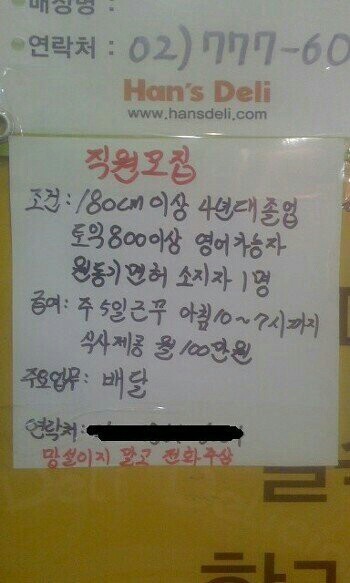 매장명 :
연락처 : 02) 777-60
Han's Deli
www.hansdeli.com
직원모집
조건 : 180cm 이상 4년대 졸업
토익 800이상 영어가능자
원동기 면허 소지자 1명
급여 : 주 5일 근무 아침 10~7시까지
식사제공 월 100만원
주요업무 : 배달
연락처 :
망설이지 말고 전화주삼